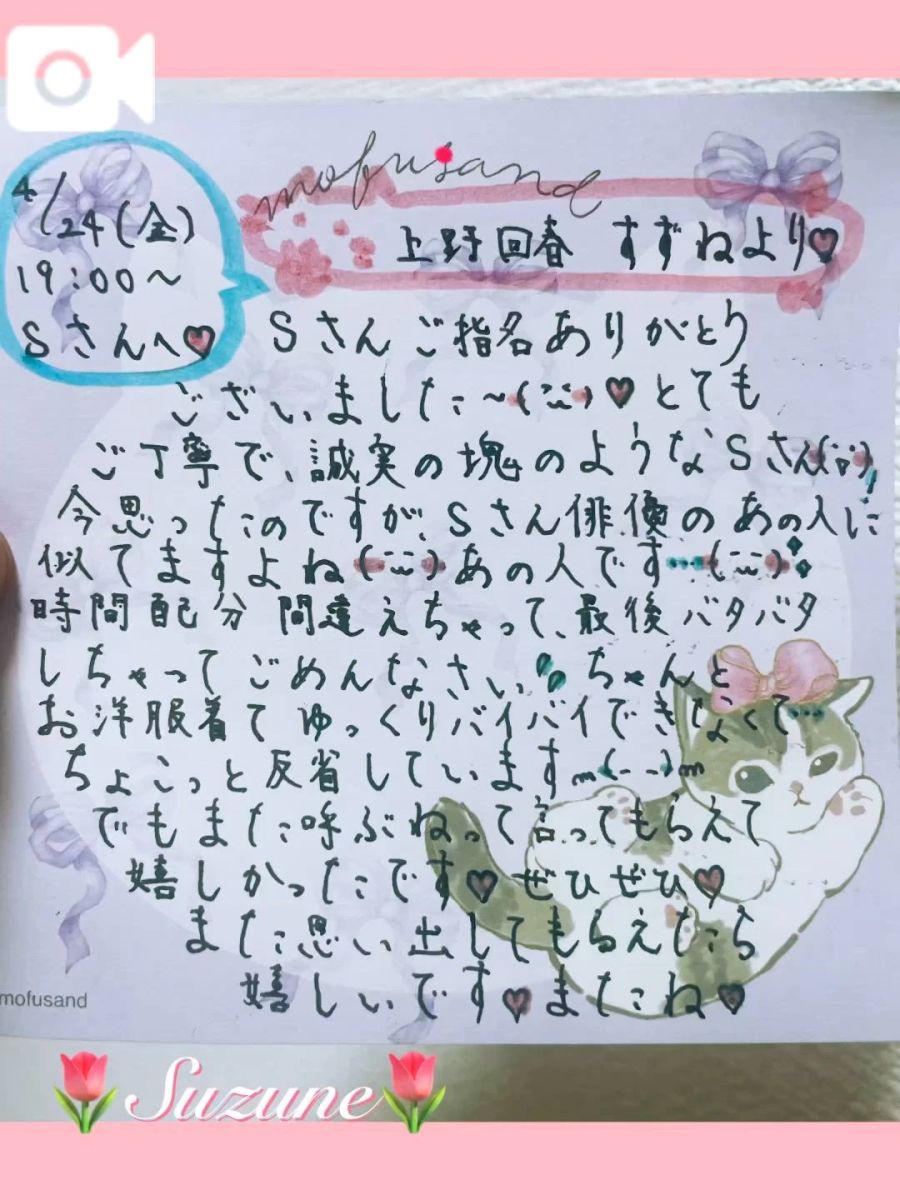 mofusand
4/24(金)
19:00〜
Sさんへ♥
上野回春 すずねより♥
Sさんご指名ありがとう
ございました〜(¨̮)♥とても
ご丁寧で、誠実の塊のようなSさん
今思ったのですが、Sさん俳優のあの人に
似てますよねあの人です…
時間配分間違えちゃって、最後バタバタ
しちゃってごめんなさい。ちゃんと
お洋服着てゆっくりバイバイできなくて…
ちょこっと反省していますm(--)m
でもまた呼ぶねって言ってもらえて
嬉しかったです♥ぜひぜひ♥
また思い出してもらえたら
嬉しいです♥またね♥
mofusand
Suzune